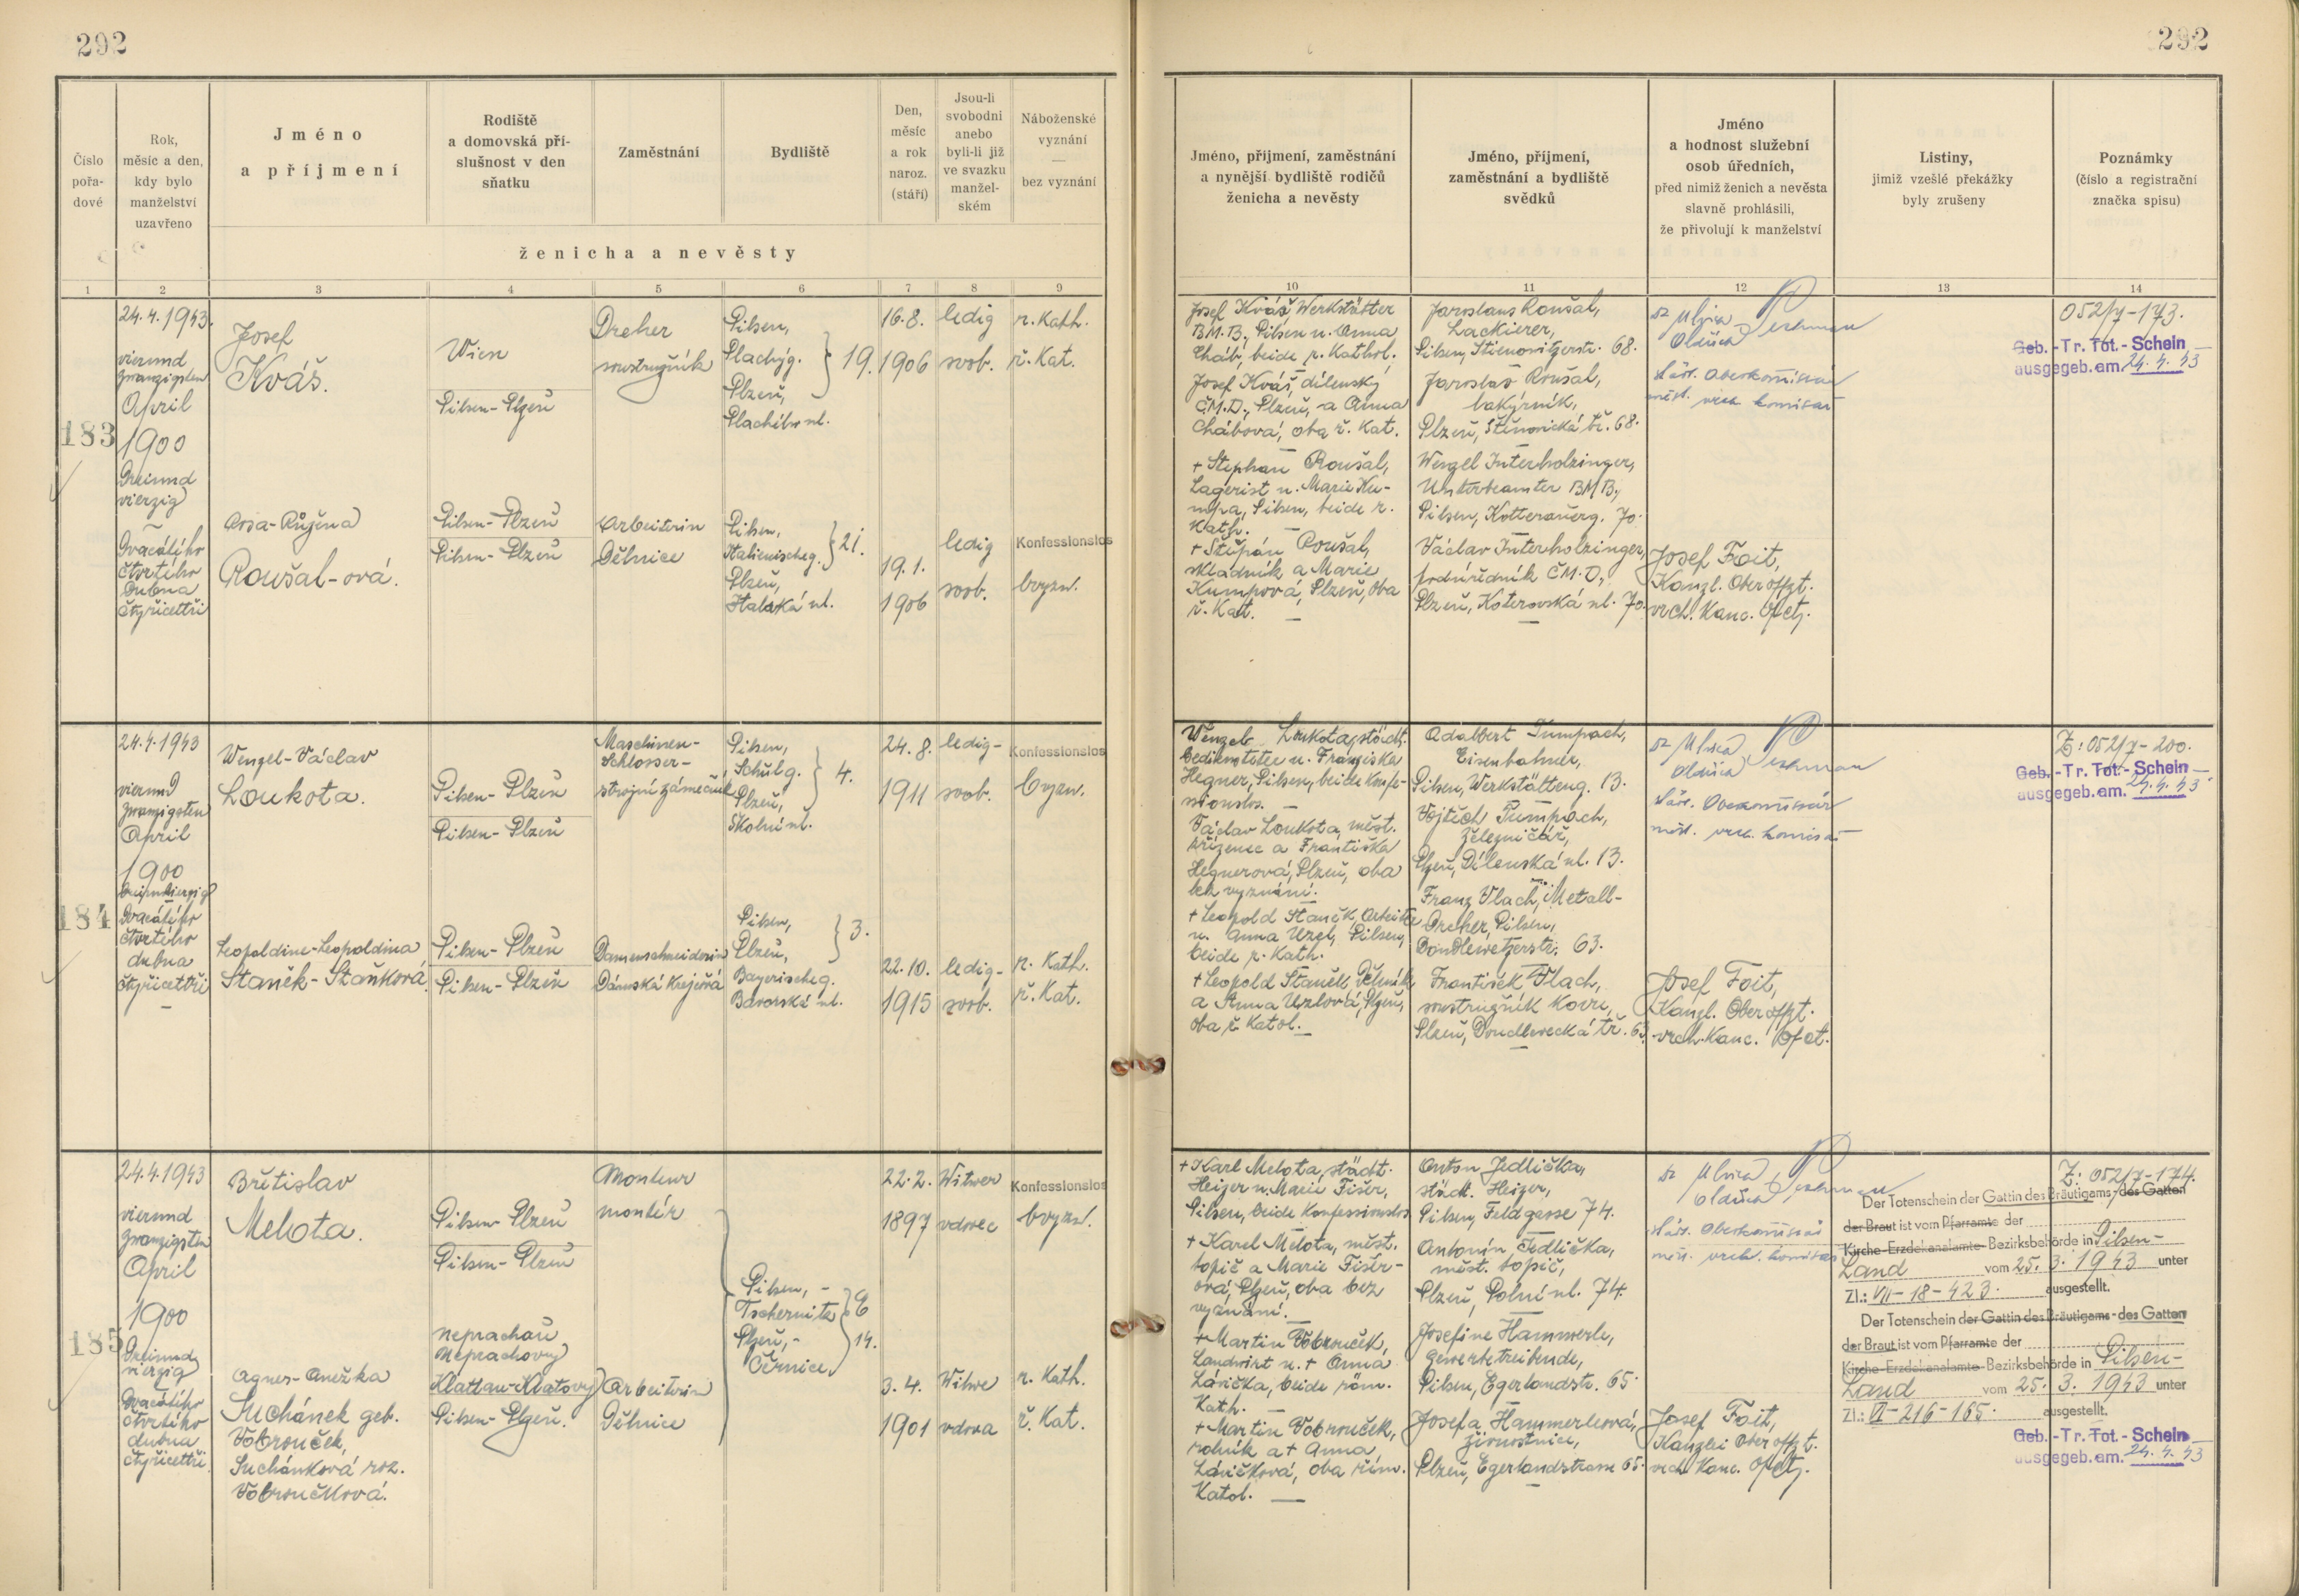 292
292
Číslo pořadové
Rok, měsíc a den, kdy bylo manželství uzavřeno
Jméno a příjmení
Rodiště a domovská příslušnost v den sňatku
Zaměstnání
Bydliště
Den, měsíc a rok naroz. (stáří)
Jsou-li svobodni anebo byli-li již ve svazku manželském
Náboženské vyznání — bez vyznání
ženicha a nevěsty
Jméno, příjmení, zaměstnání a nynější bydliště rodičů ženicha a nevěsty
Jméno, příjmení, zaměstnání a bydliště svědků
Jméno a hodnost služební osob úředních, před nimiž ženich a nevěsta slavně prohlásili, že přivolují k manželství
Listiny, jimiž vzešlé překážky byly zrušeny
Poznámky (číslo a registrační značka spisu)
1 2 3 4 5 6 7 8 9 10 11 12 13 14
183
24.4.1943.
vierund
zwanzigsten
April
1900
Dreiund
vierzig
Dvacátého
čtvrtého
Dubna
čtyřicettři
Josef
Kváš.
Wien
Pilsen-Plzeň
Dreher
soustružník
Pilsen,
Plachýg.
Plzeň,
Plachého ul.
19.
16.8.
1906
ledig
svob.
r. Kath.
ř. Kat.
Rosa-Růžena
Roušal-ová.
Pilsen-Plzeň
Pilsen-Plzeň
Arbeiterin
Dělnice
Pilsen,
Italienischeg.
Plzeň,
Italská ul.
21.
19.1.
1906
ledig
svob.
Konfessionslos
bvyzn.
Josef Kváš, Werkstätter
B.M.B., Pilsen u. Anna
Cháb, beide r. Kathol.
Josef Kváš, dílenský
Č.M.D., Plzeň, a Anna
Chábová, oba ř. Kat.
+ Stephan Roušal,
Lagerist u. Marie Ku-
mpa, Pilsen, beide r.
Kath.
+ Štěpán Roušal,
skladník a Marie
Kumpová, Plzeň, oba
ř. Kat.
Jaroslaus Roušal,
Lackierer,
Pilsen, Stienowitzerstr. 68.
Jaroslav Roušal,
lakýrník,
Plzeň, Štěnovická tř. 68.
Wenzel Interholzinger,
Unterbeamter BMB.,
Pilsen, Kotterauerg. 70.
Václav Interholzinger,
podúředník Č.M.D.,
Plzeň, Koterovská ul. 70.
Josef Foit,
Kanzl. Oberoffzt.
vrch. Kanc. Ofctj.
052/7-173.
Geb.-Tr. Tot.-Schein
ausgegeb. am. 24. 4. 43
184
24.4.1943
vierund
zwanzigsten
April
1900
Dreiundvierzig
Dvacátého
čtvrtého
dubna
čtyřicettři
Wenzel-Václav
Loukota.
Pilsen-Plzeň
Pilsen-Plzeň
Maschinen-
Schlosser-
strojní zámečník
Pilsen,
Schulg.
Plzeň,
Školní ul.
4.
24.8.
1911
ledig-
svob.
Konfessionslos
bvyzn.
Leopoldine-Leopoldina
Staněk-Staňková.
Pilsen-Plzeň
Pilsen-Plzeň
Damenschneiderin
Dámská Krejčová
Pilsen,
Plzeň,
Bayerischeg.
Bavorská ul.
3.
22.10.
1915
ledig-
svob.
r. Kath.
ř. Kat.
Wenzel Loukota, städt.
Bedienstete u. Franziska
Hegner, Pilsen, beide Konfe-
ssionslos.
Václav Loukota, měst.
zřízenec a Františka
Hegnerová, Plzeň, oba
bez vyznání.
+ Leopold Staněk, Arbeiter
u. Anna Uzel, Pilsen,
beide r. Kath.
+ Leopold Staněk, Dělník
a Anna Uzlová, Plzeň,
oba ř. Katol.
Adalbert Tumpach,
Eisenbahner,
Pilsen, Werkstätteng. 13.
Vojtěch Tumpach,
železničář,
Plzeň, Dílenská ul. 13.
Franz Vlach, Metall-
Dreher, Pilsen,
Doudlewetzerstr. 63.
František Vlach,
soustružník kovu,
Plzeň, Doudlevecká tř. 63.
Josef Foit,
Kanzl. Oberoffzt.
vrch. Kanc. Ofct.
Z: 052/7-200.
Geb.-Tr. Tot.-Schein
ausgegeb. am. 24. 4. 43
185
24.4.1943
vierund
zwanzigsten
April
1900
Dreiund
vierzig
Dvacátého
čtvrtého
dubna
čtyřicettři.
Břetislav
Melota.
Pilsen-Plzeň
Pilsen-Plzeň
Monteur
montér
22.2.
1897
Witwer
vdovec
Konfessionslos
bvyzn.
Pilsen, -
Tschernitz
Plzeň, -
Černice.
6
14.
Agnes-Anežka
Suchánek geb.
Vobrouček,
Suchánková roz.
Vobroučková.
Neprachau
Neprachovy
Klattau-Klatovy
Pilsen-Plzeň.
Arbeiterin
Dělnice
3.4.
1901
Witwe
vdova
r. Kath.
ř. Kat.
+ Karl Melota, städt.
Heizer u. Marie Fišer,
Pilsen, beide Konfessionslos
+ Karel Melota, měst.
topič a Marie Fišer-
ová, Plzeň, oba bez
vyznání.
+ Martin Vobrouček,
Landwirt u. + Anna
Lávička, beide röm.
Kath.
+ Martin Vobrouček,
rolník a + Anna
Lávičková, oba řím.
Katol.
Anton Jedlička,
städt. Heizer,
Pilsen, Feldgasse 74.
Antonín Jedlička,
měst. topič,
Plzeň, Polní ul. 74.
Josefine Hammerle,
Gewerbetreibende,
Pilsen, Egerlandstr. 65.
Josefa Hammerleová,
živnostnice,
Plzeň, Egerlandstrasse 65.
Josef Foit,
Kanzlei Oberoffzt.
vrch. Kanc. Ofctj.
Z: 052/7-174.
Der Totenschein der Gattin des Bräutigams-des Gatten
der Braut ist vom Pfarramte der
Kirche-Erzdekanalamte-Bezirksbehörde in Pilsen-
Land vom 25. 3. 1943 unter
Zl.: VII-18-423. ausgestellt.
Der Totenschein der Gattin des Bräutigams-des Gatten
der Braut ist vom Pfarramte der
Kirche-Erzdekanalamte-Bezirksbehörde in Pilsen-
Land vom 25. 3. 1943 unter
Zl.: VI-216-165. ausgestellt.
Geb.-Tr. Tot.-Schein
ausgegeb. am. 24. 4. 43